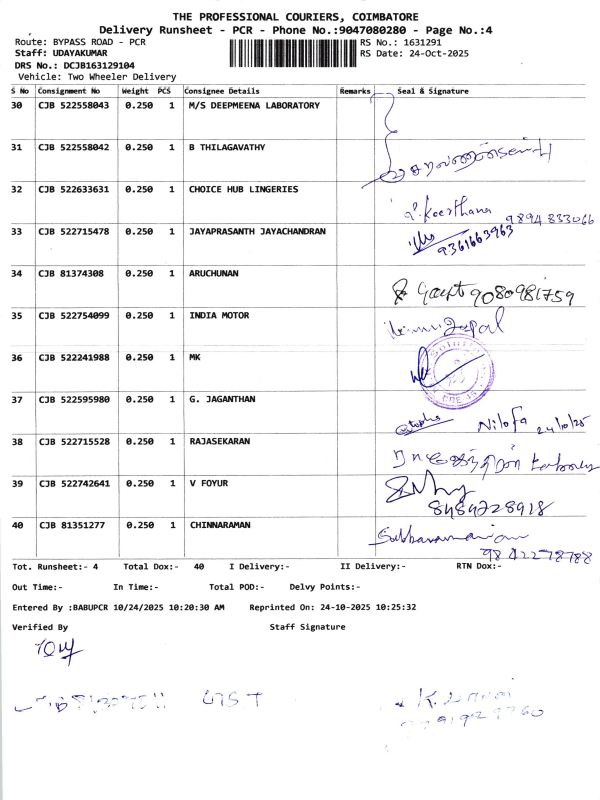 THE PROFESSIONAL COURIERS, COIMBATORE
Delivery Runsheet - PCR - Phone No.:9047080280 - Page No.:4
Route: BYPASS ROAD - PCR RS No.: 1631291
Staff: UDAYAKUMAR RS Date: 24-Oct-2025
DRS No.: DCJB163129104
Vehicle: Two Wheeler Delivery
S No Consignment No Weight PCS Consignee Details Remarks Seal & Signature
30 CJB 522558043 0.250 1 M/S DEEPMEENA LABORATORY
31 CJB 522558042 0.250 1 B THILAGAVATHY
32 CJB 522633631 0.250 1 CHOICE HUB LINGERIES
Keerthana 9894833066
33 CJB 522715478 0.250 1 JAYAPRASANTH JAYACHANDRAN
9361663963
34 CJB 81374308 0.250 1 ARUCHUNAN
9080981759
35 CJB 522754099 0.250 1 INDIA MOTOR
36 CJB 522241988 0.250 1 MK
37 CJB 522595980 0.250 1 G. JAGANTHAN
Nilofa 24/10/25
38 CJB 522715528 0.250 1 RAJASEKARAN
39 CJB 522742641 0.250 1 V FOYUR
8489728918
40 CJB 81351277 0.250 1 CHINNARAMAN
Subbaramanian
9842278788
Tot. Runsheet:- 4 Total Dox:- 40 I Delivery:- II Delivery:- RTN Dox:-
Out Time:- In Time:- Total POD:- Delvy Points:-
Entered By :BABUPCR 10/24/2025 10:20:30 AM Reprinted On: 24-10-2025 10:25:32
Verified By Staff Signature